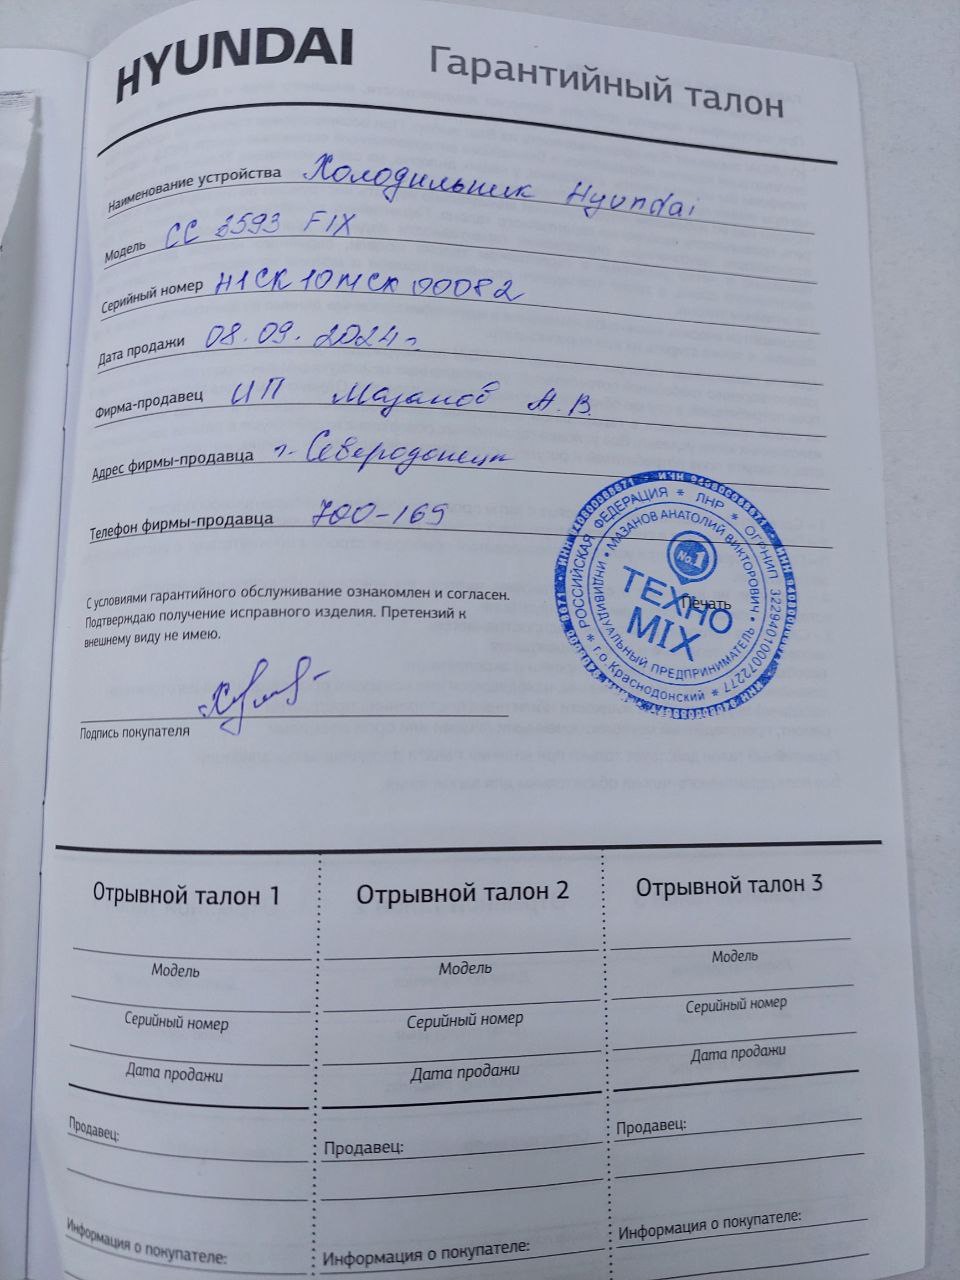 HYUNDAI Гарантийный талон
Наименование устройства Холодильник Hyundai
Модель CC 3593 FIX
Серийный номер
Дата продажи 08.09.2024г.
Фирма-продавец ИП Мазанов А.В.
Адрес фирмы-продавца г. Северодонецк
Телефон фирмы-продавца 700-169
С условиями гарантийного обслуживание ознакомлен и согласен.
Подтверждаю получение исправного изделия. Претензий к
внешнему виду не имею.
Подпись покупателя
Печать
РОССИЙСКАЯ ФЕДЕРАЦИЯ * ЛНР * ОГРНИП 322940100072277 * г.о Краснодонский *
ИНДИВИДУАЛЬНЫЙ ПРЕДПРИНИМАТЕЛЬ • МАЗАНОВ АНАТОЛИЙ ВИКТОРОВИЧ •
No.1
ТЕХНО
MIX
Отрывной талон 1 Отрывной талон 2 Отрывной талон 3
Модель Модель Модель
Серийный номер Серийный номер Серийный номер
Дата продажи Дата продажи Дата продажи
Продавец: Продавец: Продавец:
Информация о покупателе: Информация о покупателе: Информация о покупателе: